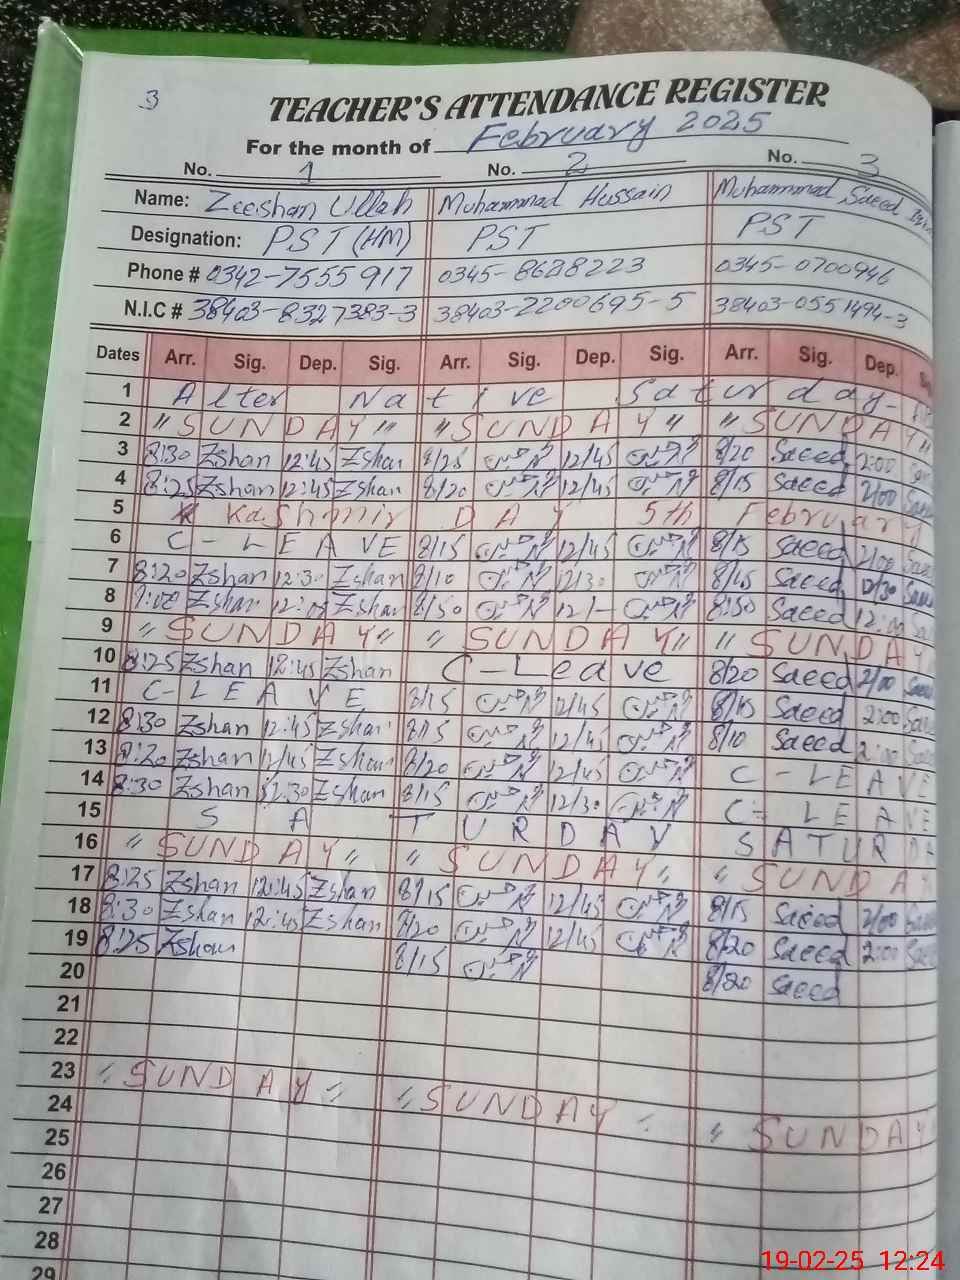 3
TEACHER'S ATTENDANCE REGISTER
For the month of February 2025
No. 1 No. 2 No. 3
Name: Zeeshan Ullah Muhammad Hussain Muhammad Saeed
Designation: PST (HM) PST PST
Phone # 0342-7555917 0345-8628223 0345-0700946
N.I.C # 38403-8327383-3 38403-2200695-5 38403-0551494-3
Dates Arr. Sig. Dep. Sig. Arr. Sig. Dep. Sig. Arr. Sig. Dep.
1 Alter Native Saturday
2 "SUNDAY" "SUNDAY" "SUNDAY"
3 8:30 Zshan 12:45 Zshan 8/25 12/45 8/20 Saeed 2:00
4 8:25 Zshan 12:45 Zshan 8/20 12/45 8/15 Saeed 2/00
5 Kashmir DAY 5th February
6 C-LEAVE 8/15 12/45 8/15 Saeed 2/00
7 8:20 Zshan 12:30 Zshan 8/10 12/30 8/45 Saeed
8 Zshan Zshan 8/50 12/- 8:50 Saeed 12:00
9 "SUNDAY" "SUNDAY" "SUNDA
10 8:25 Zshan 12:45 Zshan C-Leave 8/20 Saeed 2/00
11 C-LEAVE 8/15 12/45 8/15 Saeed 2:00
12 8:30 Zshan 12:45 Zshan 8/15 12/45 8/10 Saeed 2:00
13 8:20 Zshan 12/45 Zshan 8/20 12/45 C-LEAVE
14 8:30 Zshan 12:30 Zshan 8/15 12/30 C-LEAVE
15 SATURDAY SATURDA
16 "SUNDAY" "SUNDAY" "SUNDAY
17 8:25 Zshan 12:45 Zshan 8/15 12/45 8/15 Saeed 2/00
18 8:30 Zshan 12:45 Zshan 8/20 12/45 8/20 Saeed 2:00
19 8:25 Zshan 8/15 8/20 Saeed
20
21
22
23 "SUNDAY" "SUNDAY" "SUNDAY"
24
25
26
27
28
29
19-02-25 12:24